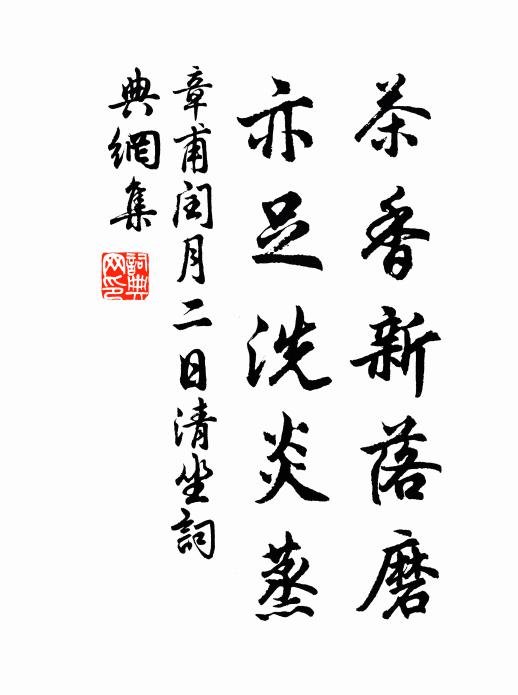 茶香新落磨
亦足洗炎蒸
章甫閏月二日清坐詞
典網集
詞典网印